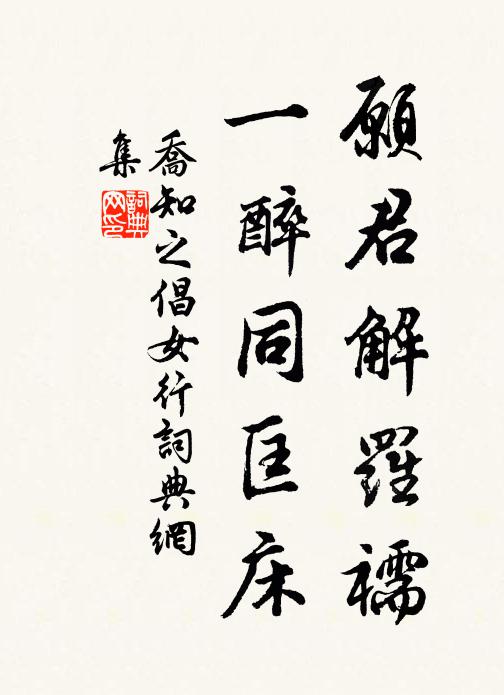 願君解羅襦
一醉同匡床
喬知之倡女行詞典網
集
詞典
网印